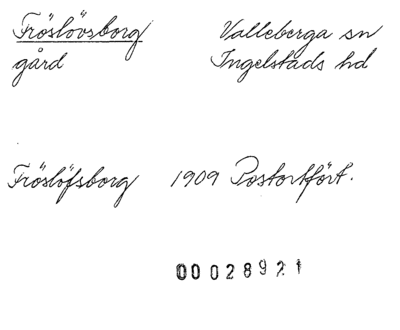 Fröslövsborg Valleberga sn
gård Ingelstads hd
Fröslöfsborg 1909 Postortfört.
00028921